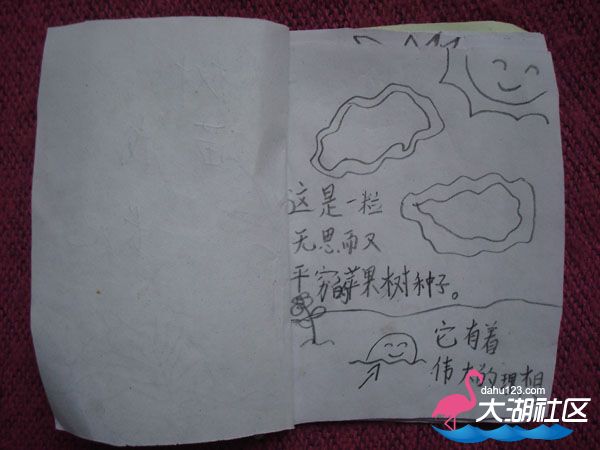 这是一粒
无思而又
平穷的苹果树种子。
它有着
伟大的理
dahu123.com
大湖社区